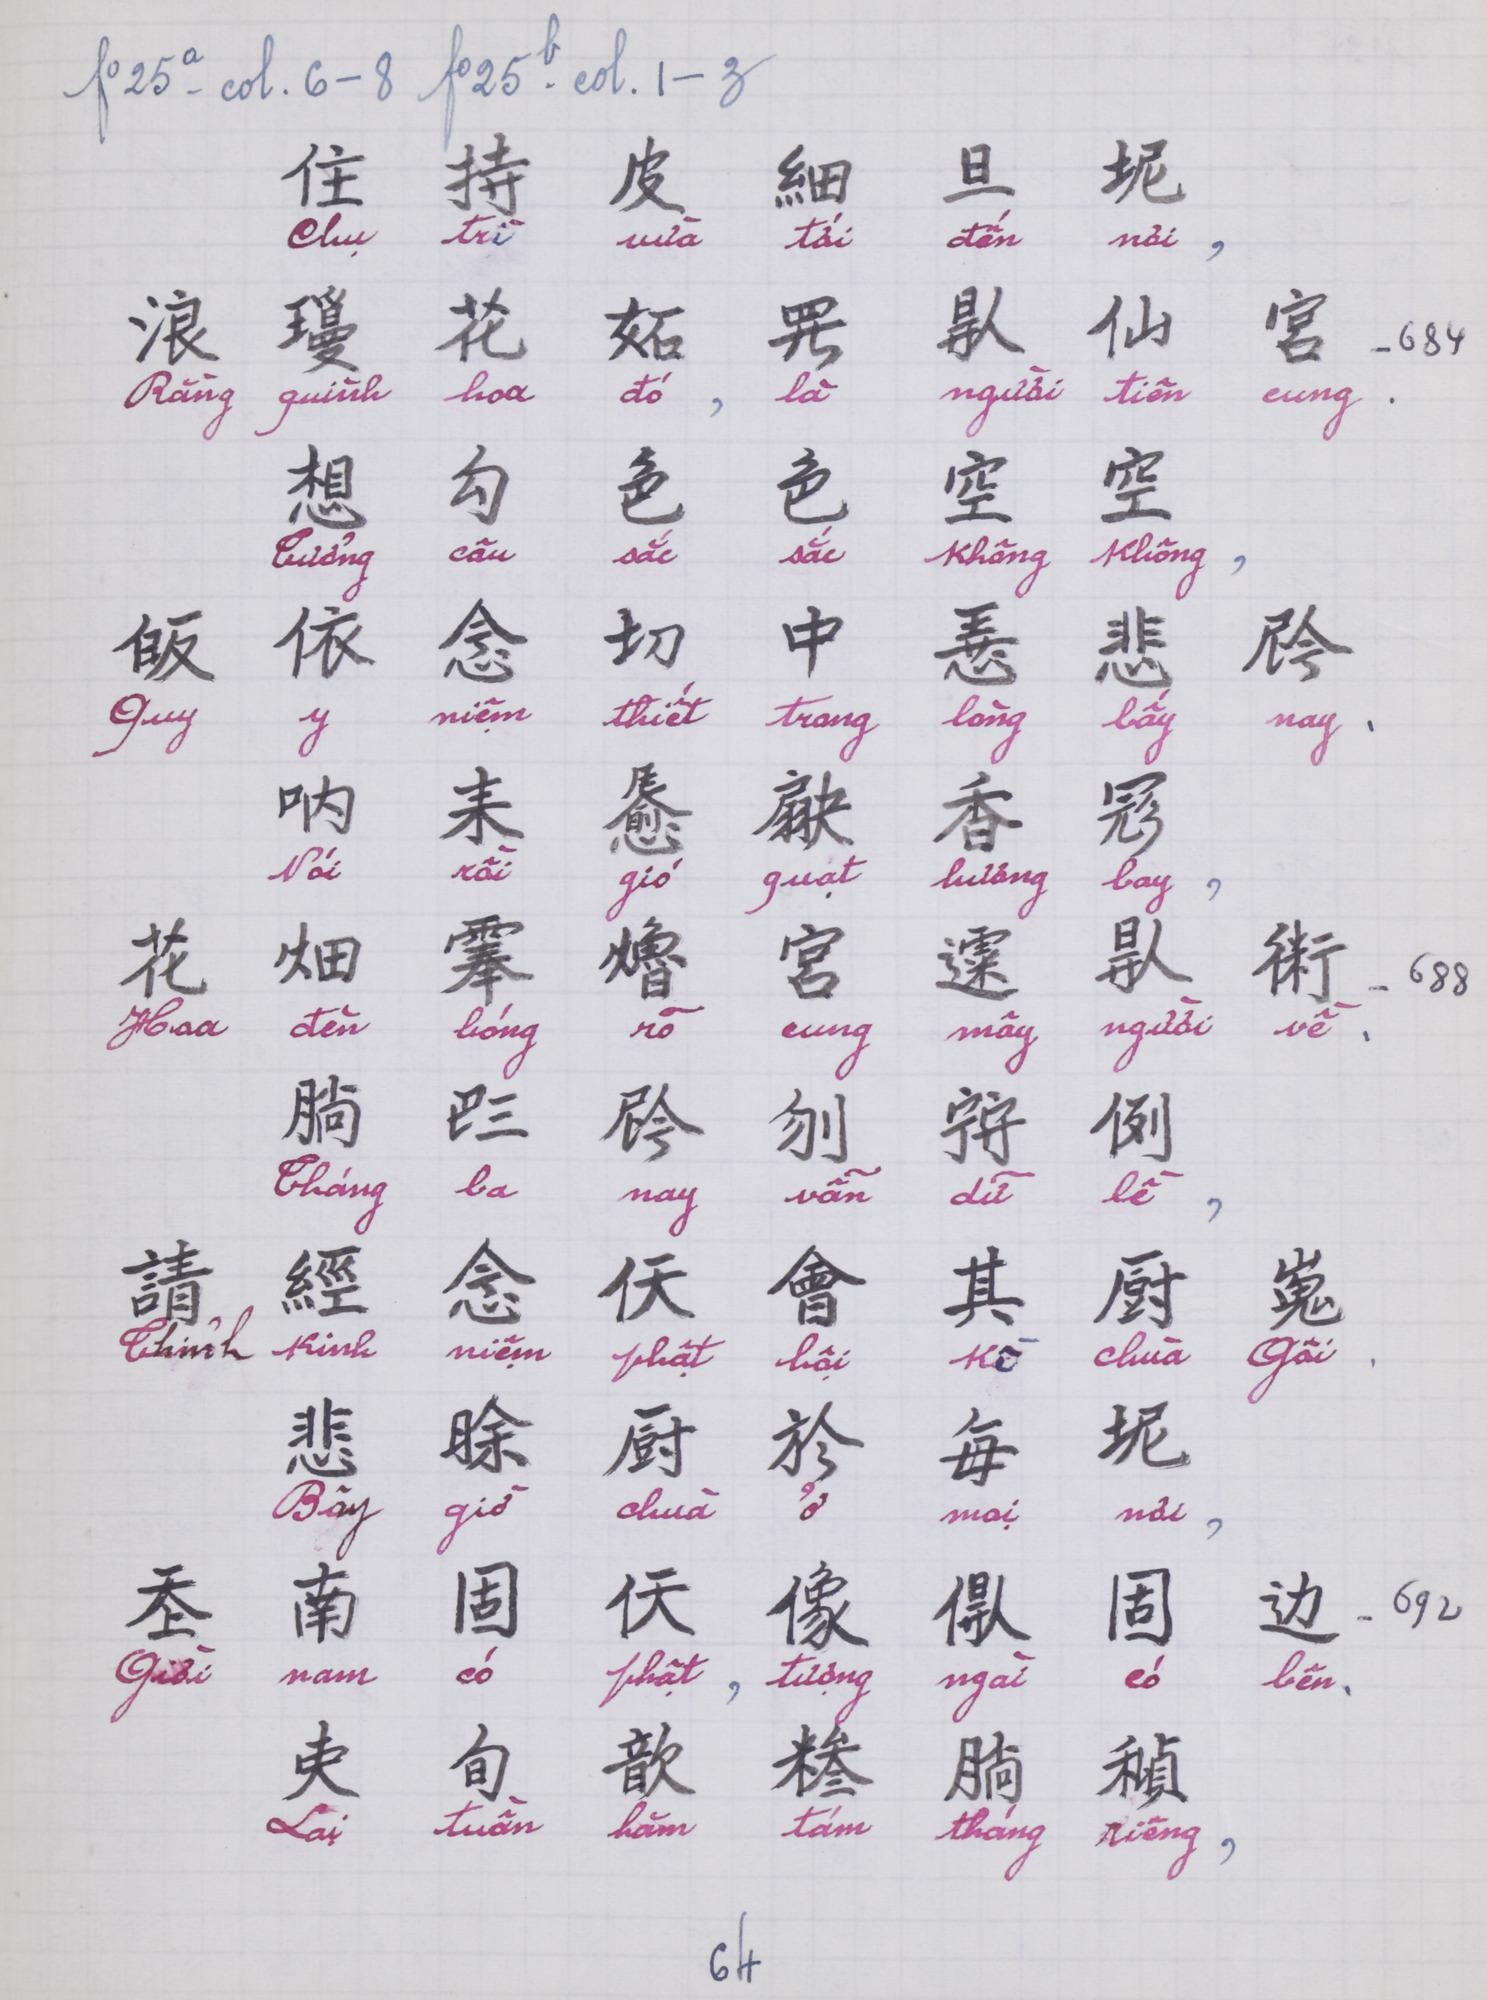 fº 25ª - col. 6 – 8 fº 25ᵇ - col. 1 – 3
住 持 皮 細 旦 坭
Chụ trì vừa tới đến nơi,
浪 瓊 花 妬 𱺵 𠊛 仙 宮 - 684
Rằng quình hoa đó, là người tiên cung.
想 勾 色 色 空 空
Tưởng câu sắc sắc không không,
皈 依 念 切 中 𢚸 悲 𫢩
Quy y niệm thiết trong lòng bấy nay.
吶 耒 𱢻 𢩊 香 𢒎
Nói rồi gió quạt hương bay,
花 畑 䨜 𤒢 宮 𩄲 𠊛 術 - 688
Hoa đèn bóng rõ cung mây người về.
𣎃 𠀧 𫢩 刎 𡨹 例
Tháng ba nay vẫn dữ lề,
請 經 念 㐌 會 其 厨 嵬
Thỉnh kinh niệm phật hội kè chùa Gôi.
悲 𣇞 厨 於 每 坭
Bây giờ chùa ở mọi nơi,
𡗶 南 固 㐌 像 𠊛 固 边 - 692
Giời nam có phật, tượng ngài có bên.
吏 旬 歆 糝 𣎃 稹
Lại tuần hăm tám tháng riêng,
64